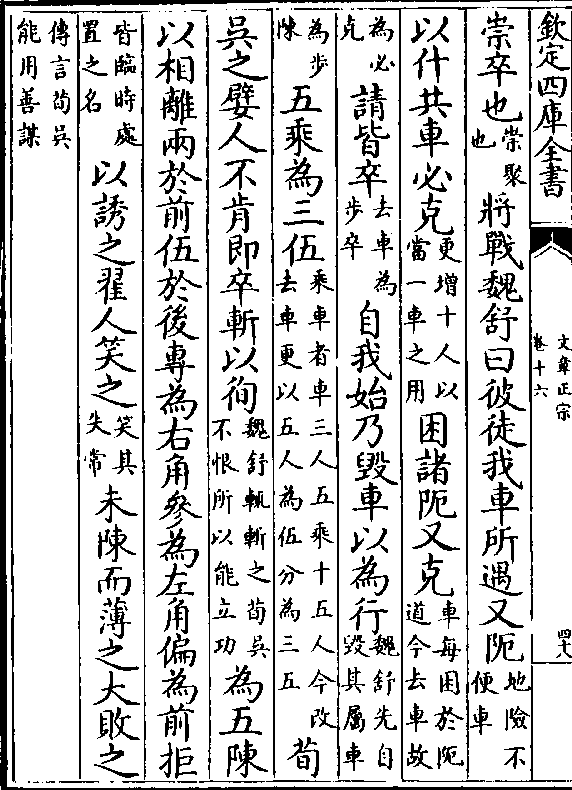 欽定四庫全書
文章正宗
卷十六
四十八
崇卒也崇聚也將戰魏舒曰彼徒我車所遇又阨地險不便車
以什共車必克更增十人以當一車之用困諸阨又克車每困於阨道今去車故
為必克請皆卒去車為步卒自我始乃毀車以為行魏舒先自毀其屬車
為步陳五乘為三伍乘車者車三人五乘十五人今改去車更以五人為伍分為三五荀
吳之嬖人不肯即卒斬以徇魏舒輒斬之荀吳不恨所以能立功為五陳
以相離兩於前伍於後專為右角參為左角偏為前拒
皆臨時處置之名以誘之翟人笑之笑其失常未陳而薄之大敗之
傳言荀吳能用善謀